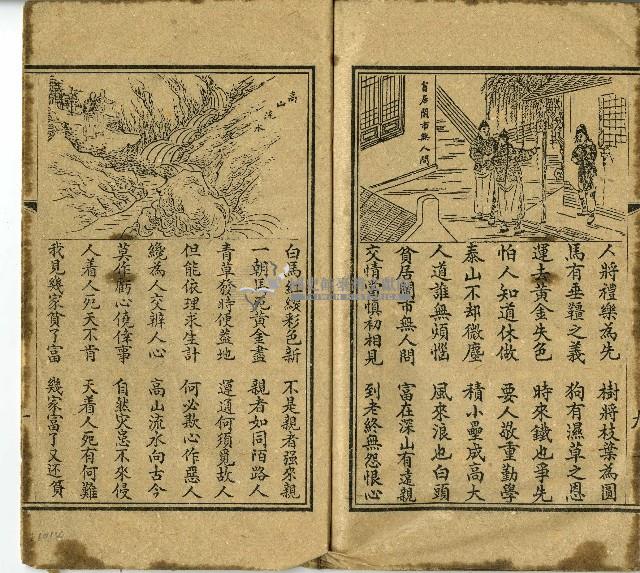 貧居閙市無人問
人將禮樂為先　樹將枝葉為圓
馬有垂韁之義　狗有濕草之恩
運去黃金失色　時來鐵也爭先
怕人知道休做　要人敬重勤學
泰山不却微塵　積小壘成高大
人道誰無煩惱　風來浪也白頭
貧居閙市無人問　富在深山有遠親
交情當慎初相見　到老終無怨恨心
高山流水
白馬紅纓彩色新　不是親者強來親
一朝馬死黃金盡　親者如同陌路人
青草發時便蓋地　運通何須覓故人
但能依理求生計　何必欺心作惡人
纔為人交辨人心　高山流水向古今
莫作虧心僥倖事　自然災患不來侵
人着人死天不肯　天着人死有何難
我見幾家貧了富　幾家富了又還貧
九